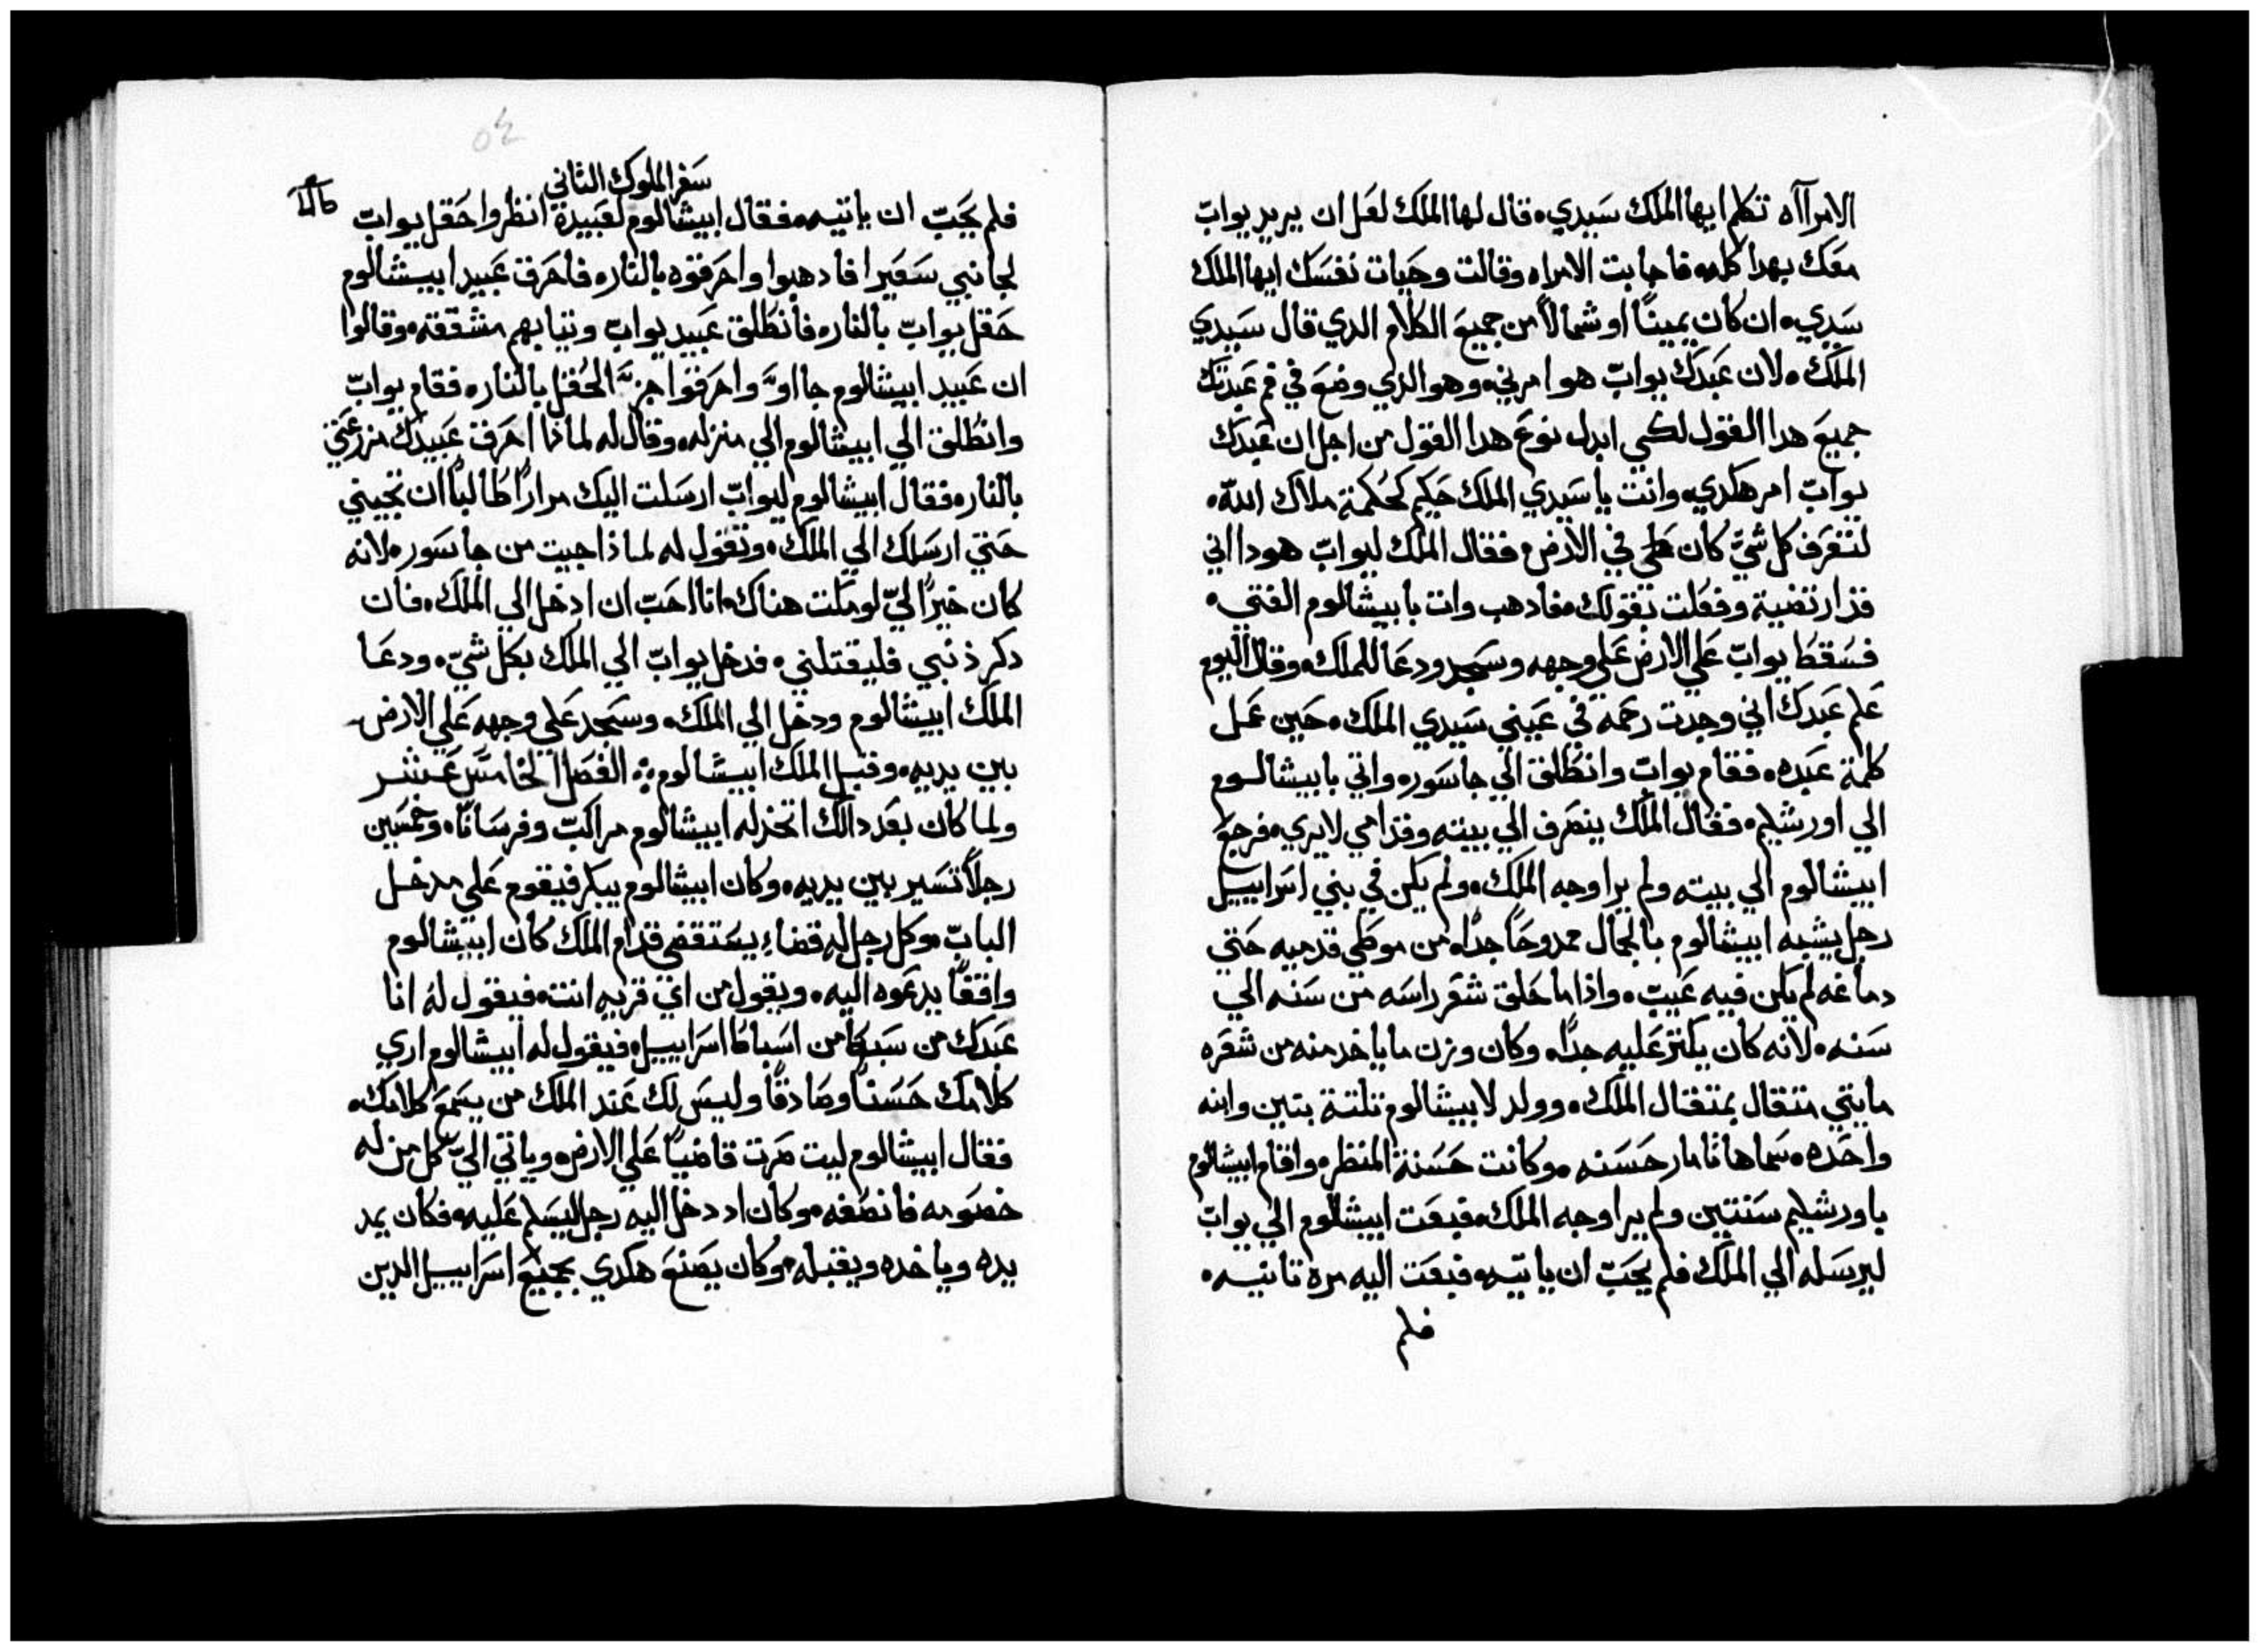 الامراآه تكلم ايها الملك سَيدي، قال لها الملك لعَل ان يريد يوابّ
معَك بهدا كله، فاجابت الامراه وقالت وحَيات نفسَك ايها الملك
سَيدي، ان كان يمينًا او شمالًا من جميعَ الكلام الدي قال سَيدي
الملك، لان عَبدَك يوابّ هو امرني، وهو الدي وضعَ في فم عَبدتك
جميعَ هدا القول لكي ابدل نوعَ هدا القول من اجل ان عَبدَك
يوابّ امر هكدي، وانت يا سَيدي الملك حَكيم كحُكمة ملاك الله،
لتعَرف كل شيّ كان على في الارض، فقال الملك ليوابّ هودا اني
قد ارتضية وفعَلت بقولك، فادهب وات بابيشالوم الفتي،
فسَقطَ يوابّ عَلي الارض عَلي وجهه وسَجد ودعَا للملك، وقال اليوم
عَلم عَبدَك اني وجدت رحَمه في عَيني سَيدي الملك، حَين عَمل
كلمة عَبده، فقام يوابّ وانطَلق الي جاسَور، واتي بابيشالوم
الي اورشليم، فقال الملك ينصَرف الي بيته وقدامي لا يري، فرجعَ
ابيشالوم الي بيته ولم يرا وجه الملك، ولم يكن في بني اسَراييل
رجل يشبه ابيشالوم بالجمال ممدوحًا جدًا، من موطَي قدميه حَتي
دماغه لم يكن فيه عَيبّ، واذا ما حَلق شعَر راسَه من سَنه الي
سَنه، لانه كان يكتر عَليه جدًا، وكان وزن ما ياخد منه من شعَره
مايتي متقال بمتقال الملك، وولد لابيشالوم تلتة بنين وابنه
واحَده، سَماها تامار حَسَنه، وكانت حَسَنة المنظر، واقام ابيشالوم
باورشليم سَنتين ولم يرا وجه الملك، فبعَت ابيشالوم الي يوابّ
ليرسَله الي الملك فلم يحَبّ ان ياتيه، فبعَت اليه مرة تانيه،
فلم
٥٤
سَفر الملوك الثاني
فلم يحَبّ ان ياتيه، فقال ابيشالوم لعَبيدة انظروا حَقل يوابّ
لجانبي سَعَيرا فادهبوا واحَرقوه بالنار، فاحَرق عَبيد ابيشالوم
حَقل يوابّ بالنار، فانطَلق عَبيد يوابّ وتيابهم مشققه، وقالوا
ان عَبيد ابيشالوم جااوَّ واحَرقوا جزءَّ الحَقل بالنار، فقام يوابّ
وانطَلق الي ابيشالوم الي منزله، وقال له لماذا احَرق عَبيدَك مزرعَتي
بالنار، فقال ابيشالوم ليوابّ ارسَلت اليك مرارًا طَالبًا ان تجيني
حَتي ارسَلك الي الملك، وتقول له لماذا جيت من جاسَور، لانه
كان خيرًا اليّ لو مكتت هناك، انا احَبّ ان ادخل الي الملك، فان
دكر ذنبي فليقتلني، فدخل يوابّ الي الملك بكل شيّ، ودعَا
الملك ابيشالوم ودخل الي الملك، وسَجد عَلي وجهه عَلي الارض
بين يديه، وقبل الملك ابيشالوم، الفصَل الخامسَ عَشر
ولما كان بعَد دالك اتخد له ابيشالوم مراكبّ وفرسَانًا، وخمسَين
رجلًا تسَير بين يديه، وكان ابيشالوم يبكر فيقوم عَلي مدخل
البابّ، وكل رجل له قضاء يسَتقضي قدام الملك كان ابيشالوم
واقفًا يدعَوه اليه، ويقول من ايّ قريه انت، فيقول له انا
عَبدَك من سَبط من اسَباط اسَراييل، فيقول له ابيشالوم اري
كلامك حَسَنًا وصَادقًا وليسَ لك عَند الملك من يسَمعَ كلامك،
فقال ابيشالوم ليت صَرت قاضيًا عَلي الارض، وياتي اليّ كل من له
خصَومه فانصَفه، وكان اد دخل اليه رجل ليسَلم عَليه، فكان يمد
يده وياخده ويقبله، وكان يصَنعَ هكدي بجميعَ اسَراييل الدين